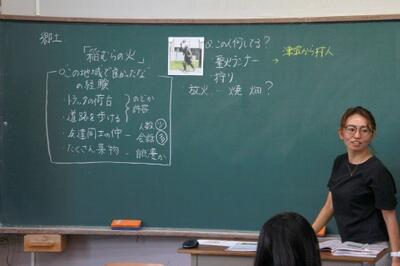 郷土
「稲むらの火」
○この地域で良かったな
の経験
・トラックの荷台
・道路を歩ける
のどか
・友達同士の仲 - 人数少
会話多
・たくさん果物 -
Q.この人何してる?
聖火ランナー
狩り
放火 … 焼畑?
→ 津波から村人